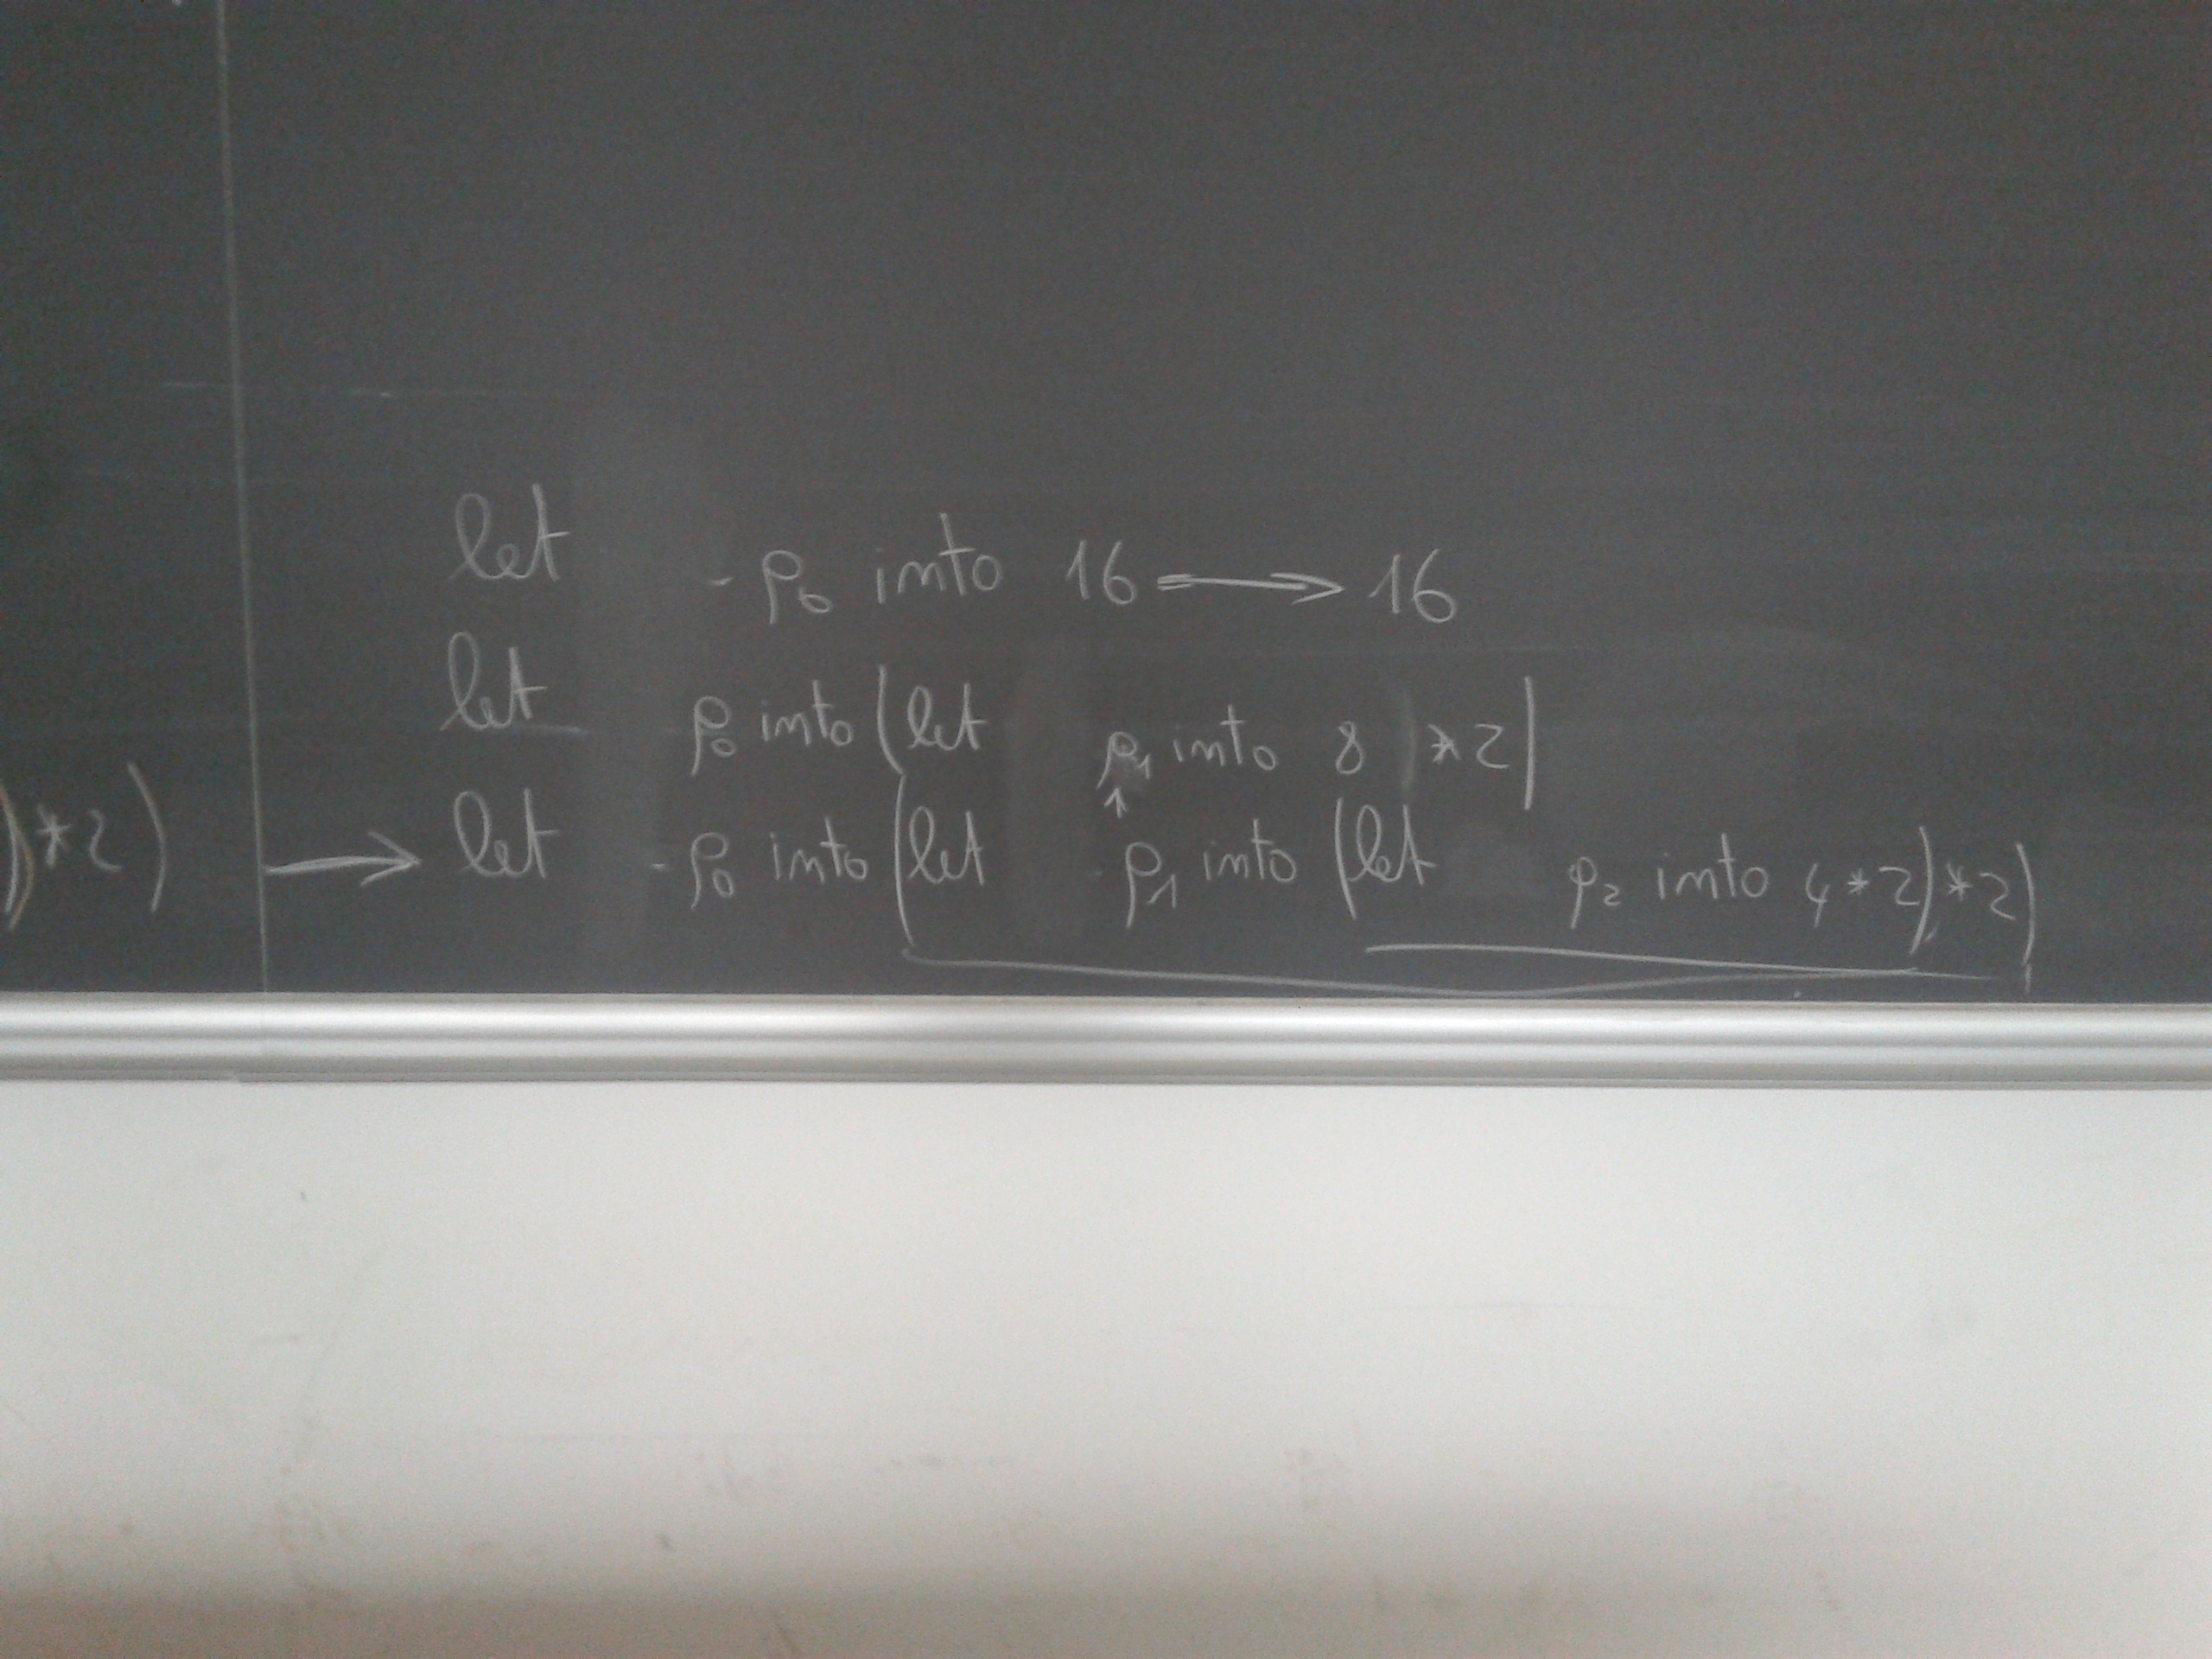 let - ρ₀ into 16 ⟹ 16
let ρ₀ into (let ρ₁ into 8 ) * 2)
↑
) * 2) → let - ρ₀ into (let - ρ₁ into (let ρ₂ into 4 * 2) * 2)